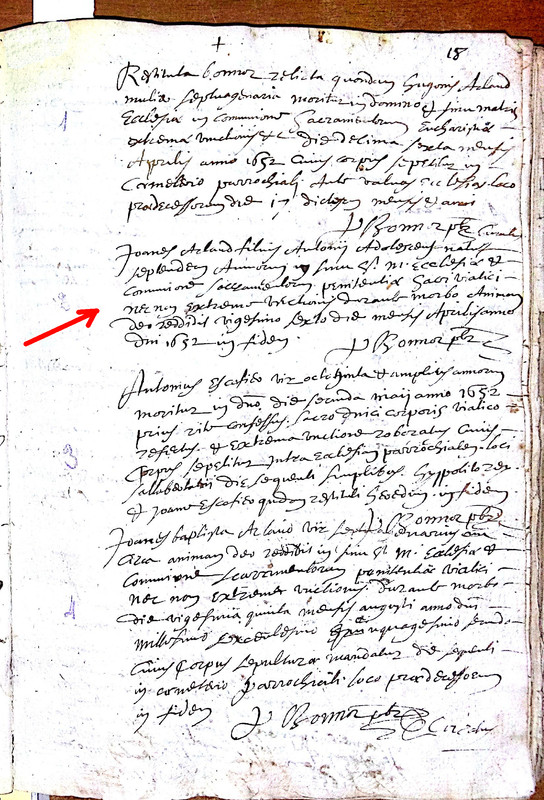 18
Restituta Bonnor relicta quondam Hugonis Arland
mulier septuagenaria moritur in domino et sinu matris
Ecclesiæ in Communione Sacramentorum Eucharistiæ
extremæ unctionis et c die decima sexta mensis
Aprilis anno 1652 Cuius corpus sepelitur in
Cœmeterio parrochiali ante valvas Ecclesiæ loco
prædecessorum die 17 dictorum mensis et anni
P Bonnor pbr
1
Joanes Arland filius Antonii Adolescens natus
septemdem Annorum in sinu St. M. Ecclesiæ et
Communione sacramentorum penitentiæ Sacri viatici
nec non extremæ unctionis durante morbo Animam
deo reddidit vigesimo sexto die mensis Aprilis anno
dni 1652 in fidem
P Bonnor pbr
2
Antonius Escofier vir octoginta et amplius annorum
moritur in dno die secunda maij anno 1652
prius rite confessus, sacro dnici corporis viatico
refectus et Extrema unctione roboratus Cuius
Corpus sepelitur Intra Ecclesiam parrochialem loci
die sequenti Hyppolito Rey
et Joane Escofier in fidem
P Bonnor pbr
3
Joanes baptista Arland vir
circa animam deo reddidit in sinu St. M. Ecclesiæ et
Communione Sacramentorum penitentiæ viatici
nec non extremæ unctionis durante morbo
die vigesima quinta mensis augusti anno dni
millesimo sexcentesimo quinquagesimo secundo
Cuius Corpus sepulturæ mandatur die sequenti
in cœmeterio parrochiali loco prædecessorum
in fidem
P Bonnor pbr
4